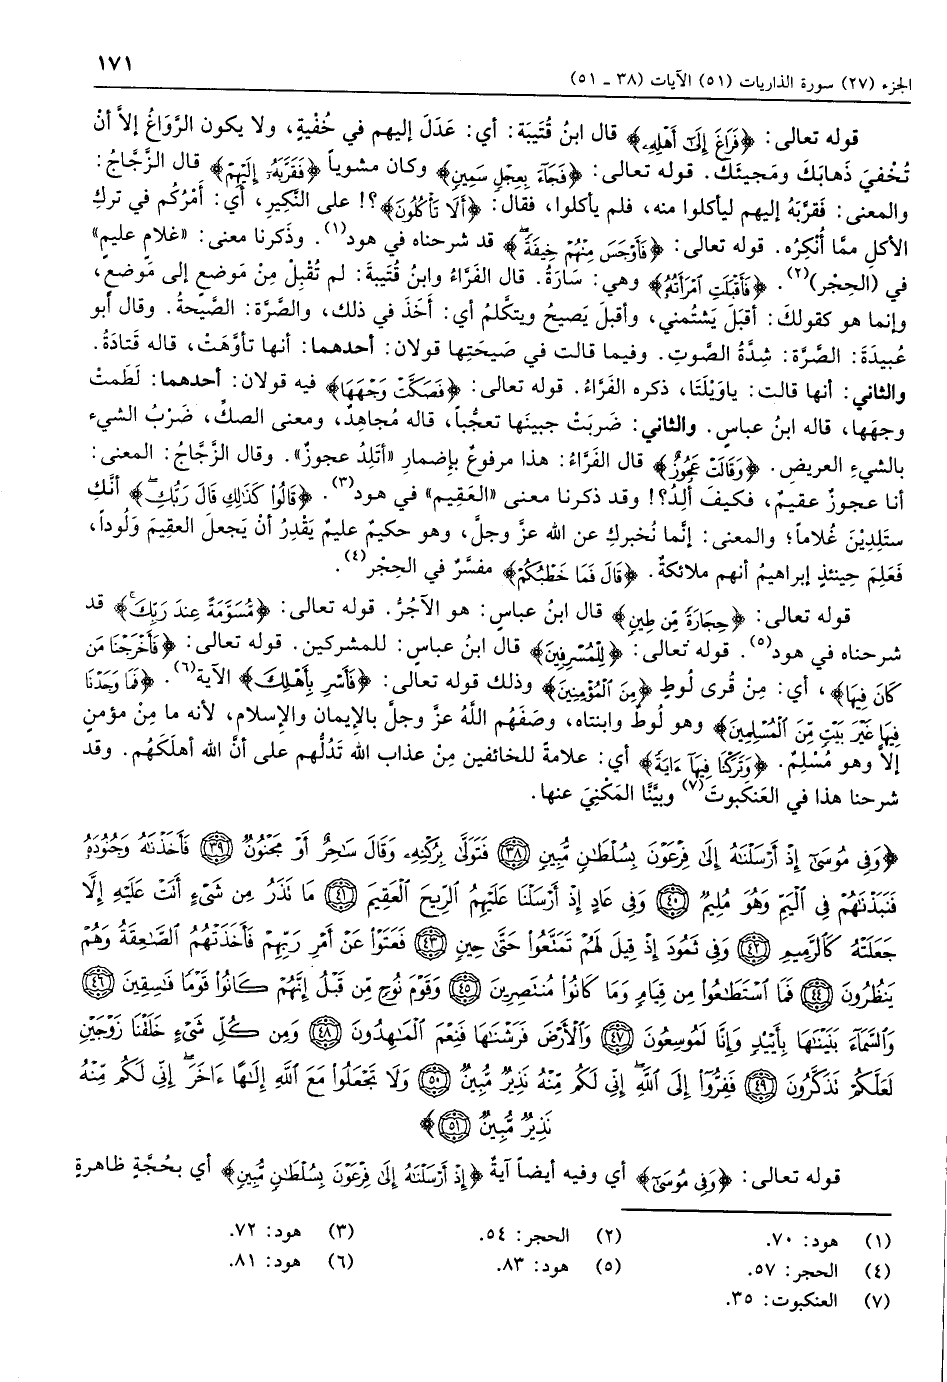 الجزء (٢٧) سورة الذاريات (٥١) الآيات (٣٨ ـ ٥١)
١٧١
قوله تعالى: ﴿فَرَاغَ إِلَىٰٓ أَهْلِهِۦ﴾ قال ابنُ قُتَيبة: أي: عَدَلَ إليهم في خُفْيةٍ، ولا يكون الرَّوَاغُ إلاَّ أنْ
تُخْفيَ ذهابَكَ ومَجيئَك. قوله تعالى: ﴿فَجَآءَ بِعِجْلٍ سَمِينٍ﴾ وكان مشوياً ﴿فَقَرَّبَهُۥٓ إِلَيْهِمْ﴾ قال الزَّجَّاجُ:
والمعنى: فَقرَّبَهُ إليهم ليأكلوا منه، فلم يأكلوا، فقال: ﴿أَلَا تَأْكُلُونَ﴾؟! على النَّكِيرِ، أي: أَمْرُكُم في تركِ
الأكلِ ممَّا أُنْكِرُه. قوله تعالى: ﴿فَأَوْجَسَ مِنْهُمْ خِيفَةً﴾ قد شرحناه في هود(١). وذَكرنا معنى: «غلامٍ عليمٍ»
في (الحِجْر)(٢). ﴿فَأَقْبَلَتِ ٱمْرَأَتُهُۥ﴾ وهي: سَارَةُ. قال الفَرَّاءُ وابنُ قُتَيبةَ: لم تُقْبِلْ مِنْ مَوضعٍ إلى مَوضعٍ،
وإنما هو كقولكَ: أقبَلَ يَشتُمني، وأقبلَ يَصيحُ ويتكَّلمُ أي: أخَذَ في ذلك، والصَّرَّة: الصَّيحةُ. وقال أبو
عُبيدَةَ: الصَّرَّة: شِدَّةُ الصَّوتِ. وفيما قالت في صَيحَتِها قولان: أحدهما: أنها تأوَّهَتْ، قاله قَتادَةُ.
والثاني: أنها قالت: ياوَيْلَتَا، ذكره الفَرَّاءُ. قوله تعالى: ﴿فَصَكَّتْ وَجْهَهَا﴾ فيه قولان: أحدهما: لَطَمتْ
وجهَها، قاله ابنُ عباسٍ. والثاني: ضَربَتْ جبينَها تعجُّباً، قاله مُجاهِدٌ، ومعنى الصكِّ، ضَرْبُ الشيء
بالشيءِ العريضِ. ﴿وَقَالَتْ عَجُوزٌ﴾ قال الفَرَّاءُ: هذا مرفوعٌ بإضمارِ «أتَلِدُ عجوزٌ». وقال الزَّجَّاجُ: المعنى:
أنا عجوزٌ عقيمٌ، فكيفَ ألِدُ؟! وقد ذكرنا معنى «العَقِيم» في هود(٣). ﴿قَالُوا۟ كَذَٰلِكِ قَالَ رَبُّكِ﴾ أنَّكِ
ستَلِدِيْنَ غُلاماً؛ والمعنى: إنَّما نُخبركِ عن الله عزَّ وجلَّ، وهو حكيمٌ عليمٌ يَقْدِرُ أنْ يَجعلَ العقيمَ وَلُوداً،
فَعَلِمَ حِينئذٍ إبراهيمُ أنهم ملائكةٌ. ﴿قَالَ فَمَا خَطْبُكُمْ﴾ مفسَّرٌ في الحِجْر(٤).
قوله تعالى: ﴿حِجَارَةً مِّن طِينٍ﴾ قال ابنُ عباسٍ: هو الآجُرُّ. قوله تعالى: ﴿مُسَوَّمَةً عِندَ رَبِّكَ﴾ قد
شرحناه في هود(٥). قوله تعالى: ﴿لِلْمُسْرِفِينَ﴾ قال ابنُ عباسٍ: للمشركين. قوله تعالى: ﴿فَأَخْرَجْنَا مَن
كَانَ فِيهَا﴾، أي: مِنْ قُرى لُوطٍ ﴿مِنَ ٱلْمُؤْمِنِينَ﴾ وذلك قوله تعالى: ﴿فَأَسْرِ بِأَهْلِكَ﴾ الآية(٦). ﴿فَمَا وَجَدْنَا
فِيهَا غَيْرَ بَيْتٍ مِّنَ ٱلْمُسْلِمِينَ﴾ وهو لُوطٌ وابنتاه، وصَفَهُم اللَّهُ عزَّ وجلَّ بالإيمان والإسلام، لأنه ما مِنْ مؤمنٍ
إلاَّ وهو مُسْلِمٌ. ﴿وَتَرَكْنَا فِيهَآ ءَايَةً﴾ أي: علامةً للخائفين مِنْ عذاب الله تَدُلُّهم على أنَّ الله أهلَكَهُم. وقد
شرحنا هذا في العَنكبوت(٧) وبيَّنَّا المَكْنِيَ عنها.
﴿وَفِى مُوسَىٰٓ إِذْ أَرْسَلْنَٰهُ إِلَىٰ فِرْعَوْنَ بِسُلْطَٰنٍ مُّبِينٍ ٣٨ فَتَوَلَّىٰ بِرُكْنِهِۦ وَقَالَ سَٰحِرٌ أَوْ مَجْنُونٌ ٣٩ فَأَخَذْنَٰهُ وَجُنُودَهُۥ
فَنَبَذْنَٰهُمْ فِى ٱلْيَمِّ وَهُوَ مُلِيمٌ ٤٠ وَفِى عَادٍ إِذْ أَرْسَلْنَا عَلَيْهِمُ ٱلرِّيحَ ٱلْعَقِيمَ ٤١ مَا تَذَرُ مِن شَىْءٍ أَتَتْ عَلَيْهِ إِلَّا
جَعَلَتْهُ كَٱلرَّمِيمِ ٤٢ وَفِى ثَمُودَ إِذْ قِيلَ لَهُمْ تَمَتَّعُوا۟ حَتَّىٰ حِينٍ ٤٣ فَعَتَوْا۟ عَنْ أَمْرِ رَبِّهِمْ فَأَخَذَتْهُمُ ٱلصَّٰعِقَةُ وَهُمْ
يَنظُرُونَ ٤٤ فَمَا ٱسْتَطَٰعُوا۟ مِن قِيَامٍ وَمَا كَانُوا۟ مُنتَصِرِينَ ٤٥ وَقَوْمَ نُوحٍ مِّن قَبْلُ إِنَّهُمْ كَانُوا۟ قَوْمًا فَٰسِقِينَ ٤٦
وَٱلسَّمَآءَ بَنَيْنَٰهَا بِأَيْي۟دٍ وَإِنَّا لَمُوسِعُونَ ٤٧ وَٱلْأَرْضَ فَرَشْنَٰهَا فَنِعْمَ ٱلْمَٰهِدُونَ ٤٨ وَمِن كُلِّ شَىْءٍ خَلَقْنَا زَوْجَيْنِ
لَعَلَّكُمْ تَذَكَّرُونَ ٤٩ فَفِرُّوٓا۟ إِلَى ٱللَّهِ إِنِّى لَكُم مِّنْهُ نَذِيرٌ مُّبِينٌ ٥٠ وَلَا تَجْعَلُوا۟ مَعَ ٱللَّهِ إِلَٰهًا ءَاخَرَ إِنِّى لَكُم مِّنْهُ
نَذِيرٌ مُّبِينٌ ٥١﴾
قوله تعالى: ﴿وَفِى مُوسَىٰٓ﴾ أي وفيه أيضاً آيةٌ ﴿إِذْ أَرْسَلْنَٰهُ إِلَىٰ فِرْعَوْنَ بِسُلْطَٰنٍ مُّبِينٍ﴾ أي بحُجَّةٍ ظاهرةٍ
(١) هود: ٧٠. (٢) الحجر: ٥٤. (٣) هود: ٧٢.
(٤) الحجر: ٥٧. (٥) هود: ٨٣. (٦) هود: ٨١.
(٧) العنكبوت: ٣٥.